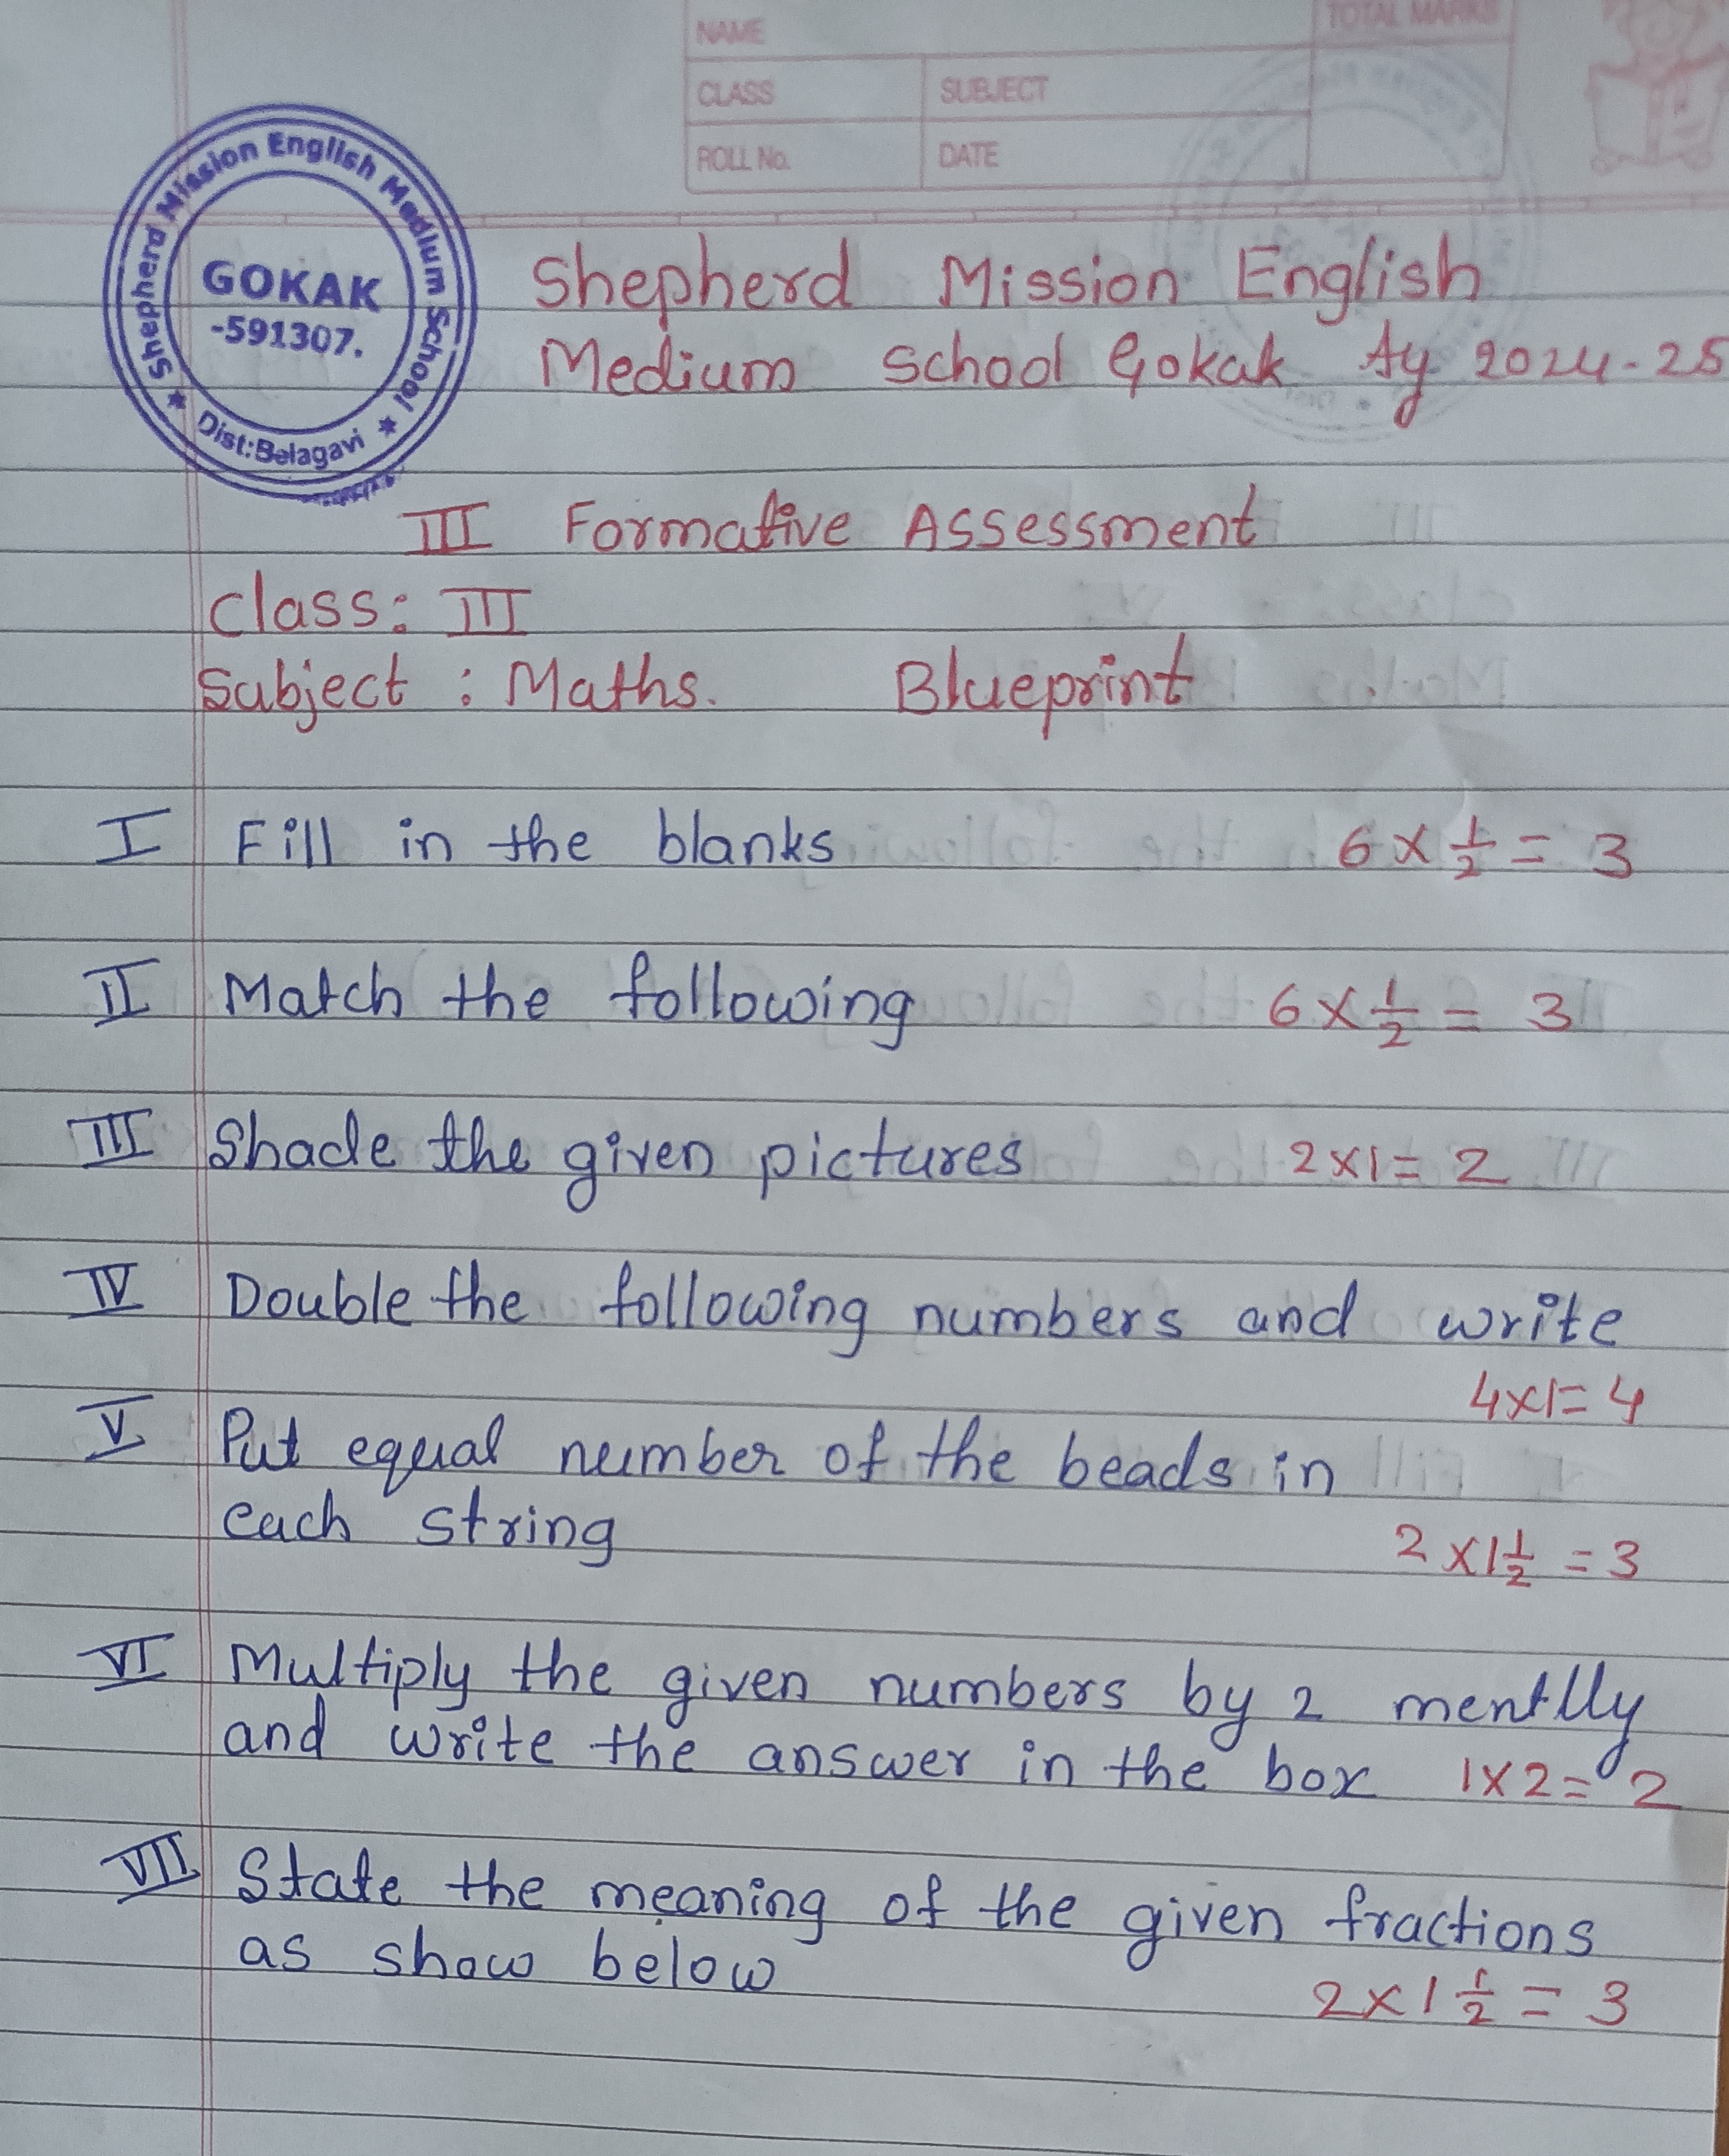 NAME
TOTAL MARKS
CLASS
SUBJECT
ROLL No.
DATE
Shepherd Mission English Medium School
GOKAK
-591307.
Dist:Belagavi
Shepherd Mission English
Medium School Gokak Ay 2024-25
III Formative Assessment
Class: III
Subject : Maths. Blueprint
I Fill in the blanks 6 × 1/2 = 3
II Match the following 6 × 1/2 = 3
III Shade the given pictures 2×1= 2
IV Double the following numbers and write
4×1= 4
V Put equal number of the beads in
each string
2 × 1 1/2 = 3
VI Multiply the given numbers by 2 mentlly
and write the answer in the box 1×2= 2
VII State the meaning of the given fractions
as show below
2 × 1 1/2 = 3